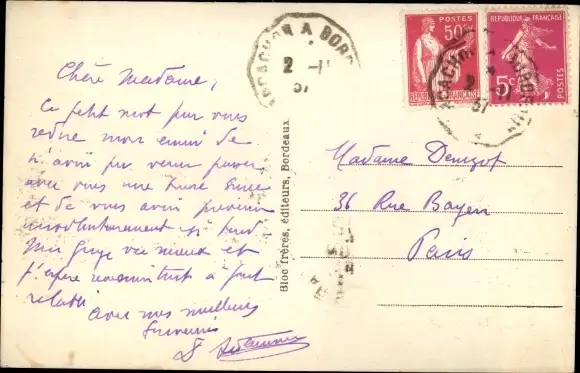 Chère Madame,
Ce petit mot pour vous
redire mon ennui de
n'avoir pu venir passer
avec vous une bonne
et de vous avoir prévenu
involontairement si tard
Mon va mieux et
j'espère à fait
avec nos meilleurs
Souvenirs
ARCACHON A BORD
2 -1
37
POSTES
50c
RÉPUBLIQUE FRANÇAISE
REPUBLIQUE FRANÇAISE
5c
POSTES
ARCACHON A BORDEAUX
2
37
Bloc frères, éditeurs, Bordeaux
Madame Denizot
36 Rue Bayen
Paris